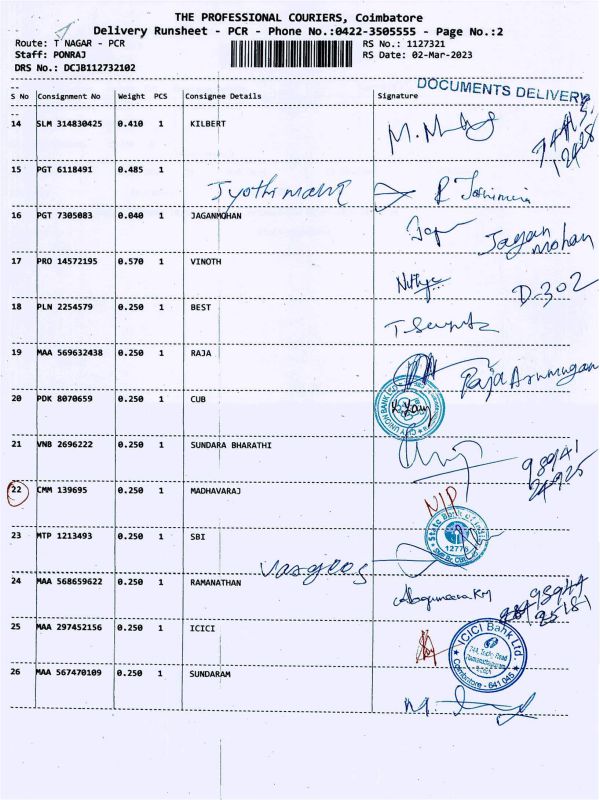 THE PROFESSIONAL COURIERS, Coimbatore
Delivery Runsheet - PCR - Phone No.:0422-3505555 - Page No.:2
Route: T NAGAR - PCR RS No.: 1127321
Staff: PONRAJ RS Date: 02-Mar-2023
DRS No.: DCJB112732102
DOCUMENTS DELIVERY
S No Consignment No Weight PCS Consignee Details Signature
14 SLM 314830425 0.410 1 KILBERT
15 PGT 6118491 0.485 1
Jyothimani
16 PGT 7305083 0.040 1 JAGANMOHAN
Jagan
mohan
17 PRO 14572195 0.570 1 VINOTH
Nithya D-302
18 PLN 2254579 0.250 1 BEST
19 MAA 569632438 0.250 1 RAJA
Raja Arumugam
20 PDK 8070659 0.250 1 CUB
21 VNB 2696222 0.250 1 SUNDARA BHARATHI
98941
24925
22 CMM 139695 0.250 1 MADHAVARAJ
NIP
23 MTP 1213493 0.250 1 SBI
State Bank of
12776
24 MAA 568659622 0.250 1 RAMANATHAN
98944
25181
25 MAA 297452156 0.250 1 ICICI
ICICI Bank Ltd.
Coimbatore - 641 045
26 MAA 567470109 0.250 1 SUNDARAM